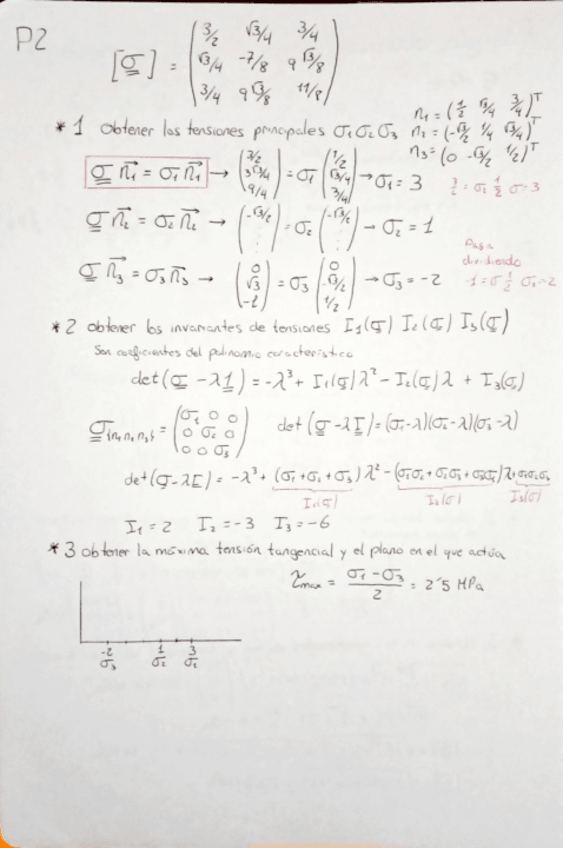 P2
[σ] = (3/2 √3/4 3/4
√3/4 -7/8 9√3/8
3/4 9√3/8 11/8)
n₁ = (1/2 √3/4 3/4)ᵀ
n₂ = (-√3/2 1/4 √3/4)ᵀ
n₃ = (0 -√3/2 1/2)ᵀ
* 1 obtener las tensiones principales σ₁ σ₂ σ₃
σ n₁ = σ₁ n₁ → (3/2 3√3/4 9/4) = σ₁ (1/2 √3/4 3/4) → σ₁ = 3
3/2 = σ₁ 1/2 σ = 3
σ n₂ = σ₂ n₂ → (-√3/2 ⋮) = σ₂ (-√3/2 ⋮) → σ₂ = 1
σ n₃ = σ₃ n₃ → (0 √3 -1) = σ₃ (0 -√3/2 1/2) → σ₃ = -2
Pasa
dividiendo
-1 = σ 1/2 σ₃ = -2
* 2 obtener los invariantes de tensiones I₁(σ) I₂(σ) I₃(σ)
Son coeficientes del polinomio característico
det(σ - λ1) = -λ³ + I₁(σ)λ² - I₂(σ)λ + I₃(σ)
σ{n₁ n₂ n₃} = (σ₁ 0 0
0 σ₂ 0
0 0 σ₃)
det(σ - λI) = (σ₁-λ)(σ₂-λ)(σ₃-λ)
det(σ - λI) = -λ³ + (σ₁ + σ₂ + σ₃)λ² - (σ₁σ₂ + σ₂σ₃ + σ₃σ₁)λ + σ₁σ₂σ₃
I₁(σ) I₂(σ) I₃(σ)
I₁ = 2 I₂ = -3 I₃ = -6
* 3 obtener la máxima tensión tangencial y el plano en el que actúa
τmax = (σ₁ - σ₃)/2 = 2'5 MPa
-2 1 3
σ₃ σ₂ σ₁